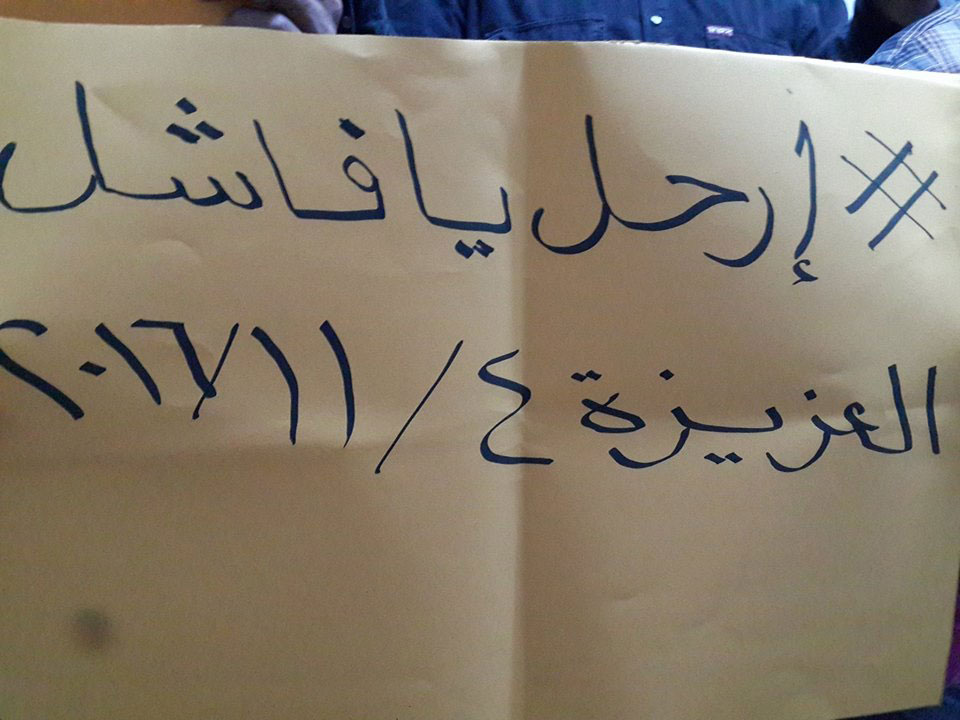 #إرحل يا فاشل
العزيزة ٤/١١/٢٠١٦